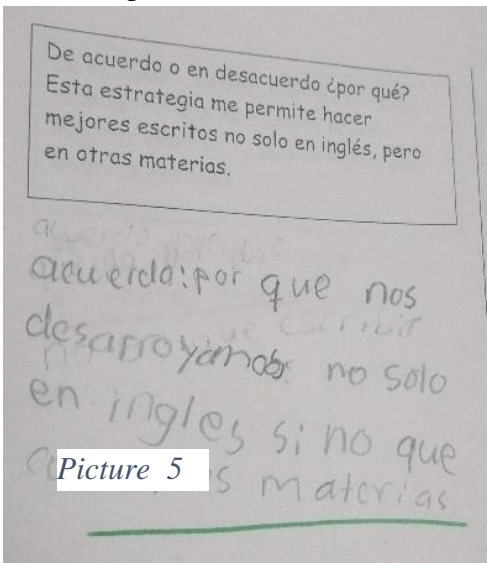 De acuerdo o en desacuerdo ¿por qué?
Esta estrategia me permite hacer
mejores escritos no solo en inglés, pero
en otras materias.
acuerda: por que nos
desarroyamos no solo
en ingles si no que
Picture 5
materias